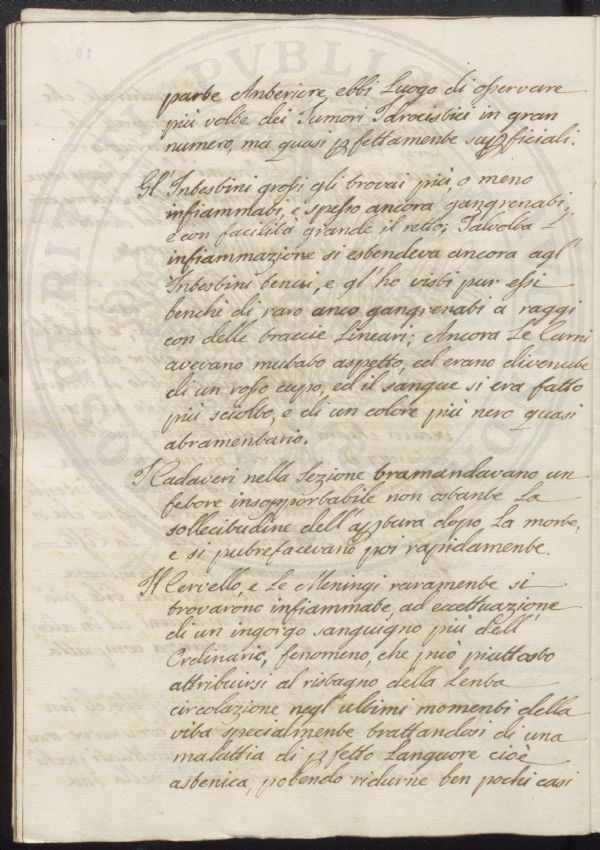 parte Anteriore ebbi Luogo di osservare
più volte dei Tumori Idrocistici in gran
numero, ma quasi pfettamente supficiali.
Gl' Intestini grossi gli trovai più, o meno
infiammati, e spesso ancora gangrenati,
e con facilità grande il retto; Talvolta l'
infiammazione si estendeva ancora agl'
Intestini tenui, e gl' ho visti pur essi
benchè di raro anco gangrenati a raggi
con delle traccie Lineari; Ancora Le Carni
avevano mutato aspetto, ed erano divenute
di un rosso cupo, ed il sangue si era fatto
più sciolto, e di un colore più nero quasi
atramentario.
I Cadaveri nella Sezione tramandavano un
fetore insopportabile non ostante La
sollecitudine dell' aptura dopo La morte,
e si putrefacevano poi rapidamente.
Il Cervello, e Le Meningi raramente si
trovarono infiammate, ad eccettuazione
di un ingorgo sanguigno più dell'
Ordinario, fenomeno, che può piuttosto
attribuirsi al ristagno della Lenta
circolazione negl' ultimi momenti della
vita specialmente trattandosi di una
malattia di pfetto Languore cioè
astenica, potendo ridurne ben pochi casi
PVBLIC